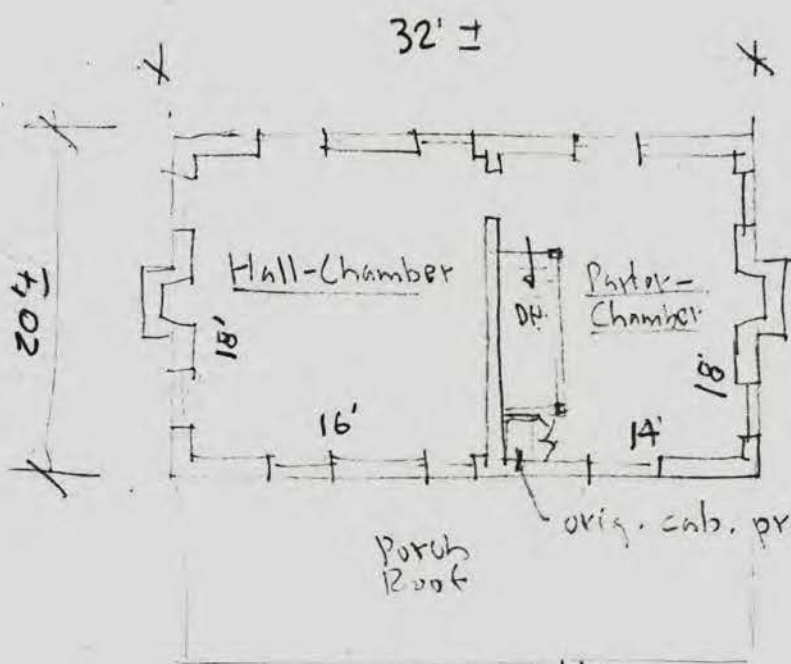 32' ±
20' ±
Hall-Chamber
Parlor-
Chamber
DN.
18'
18'
16'
14'
orig. cab. pr
Porch
Roof